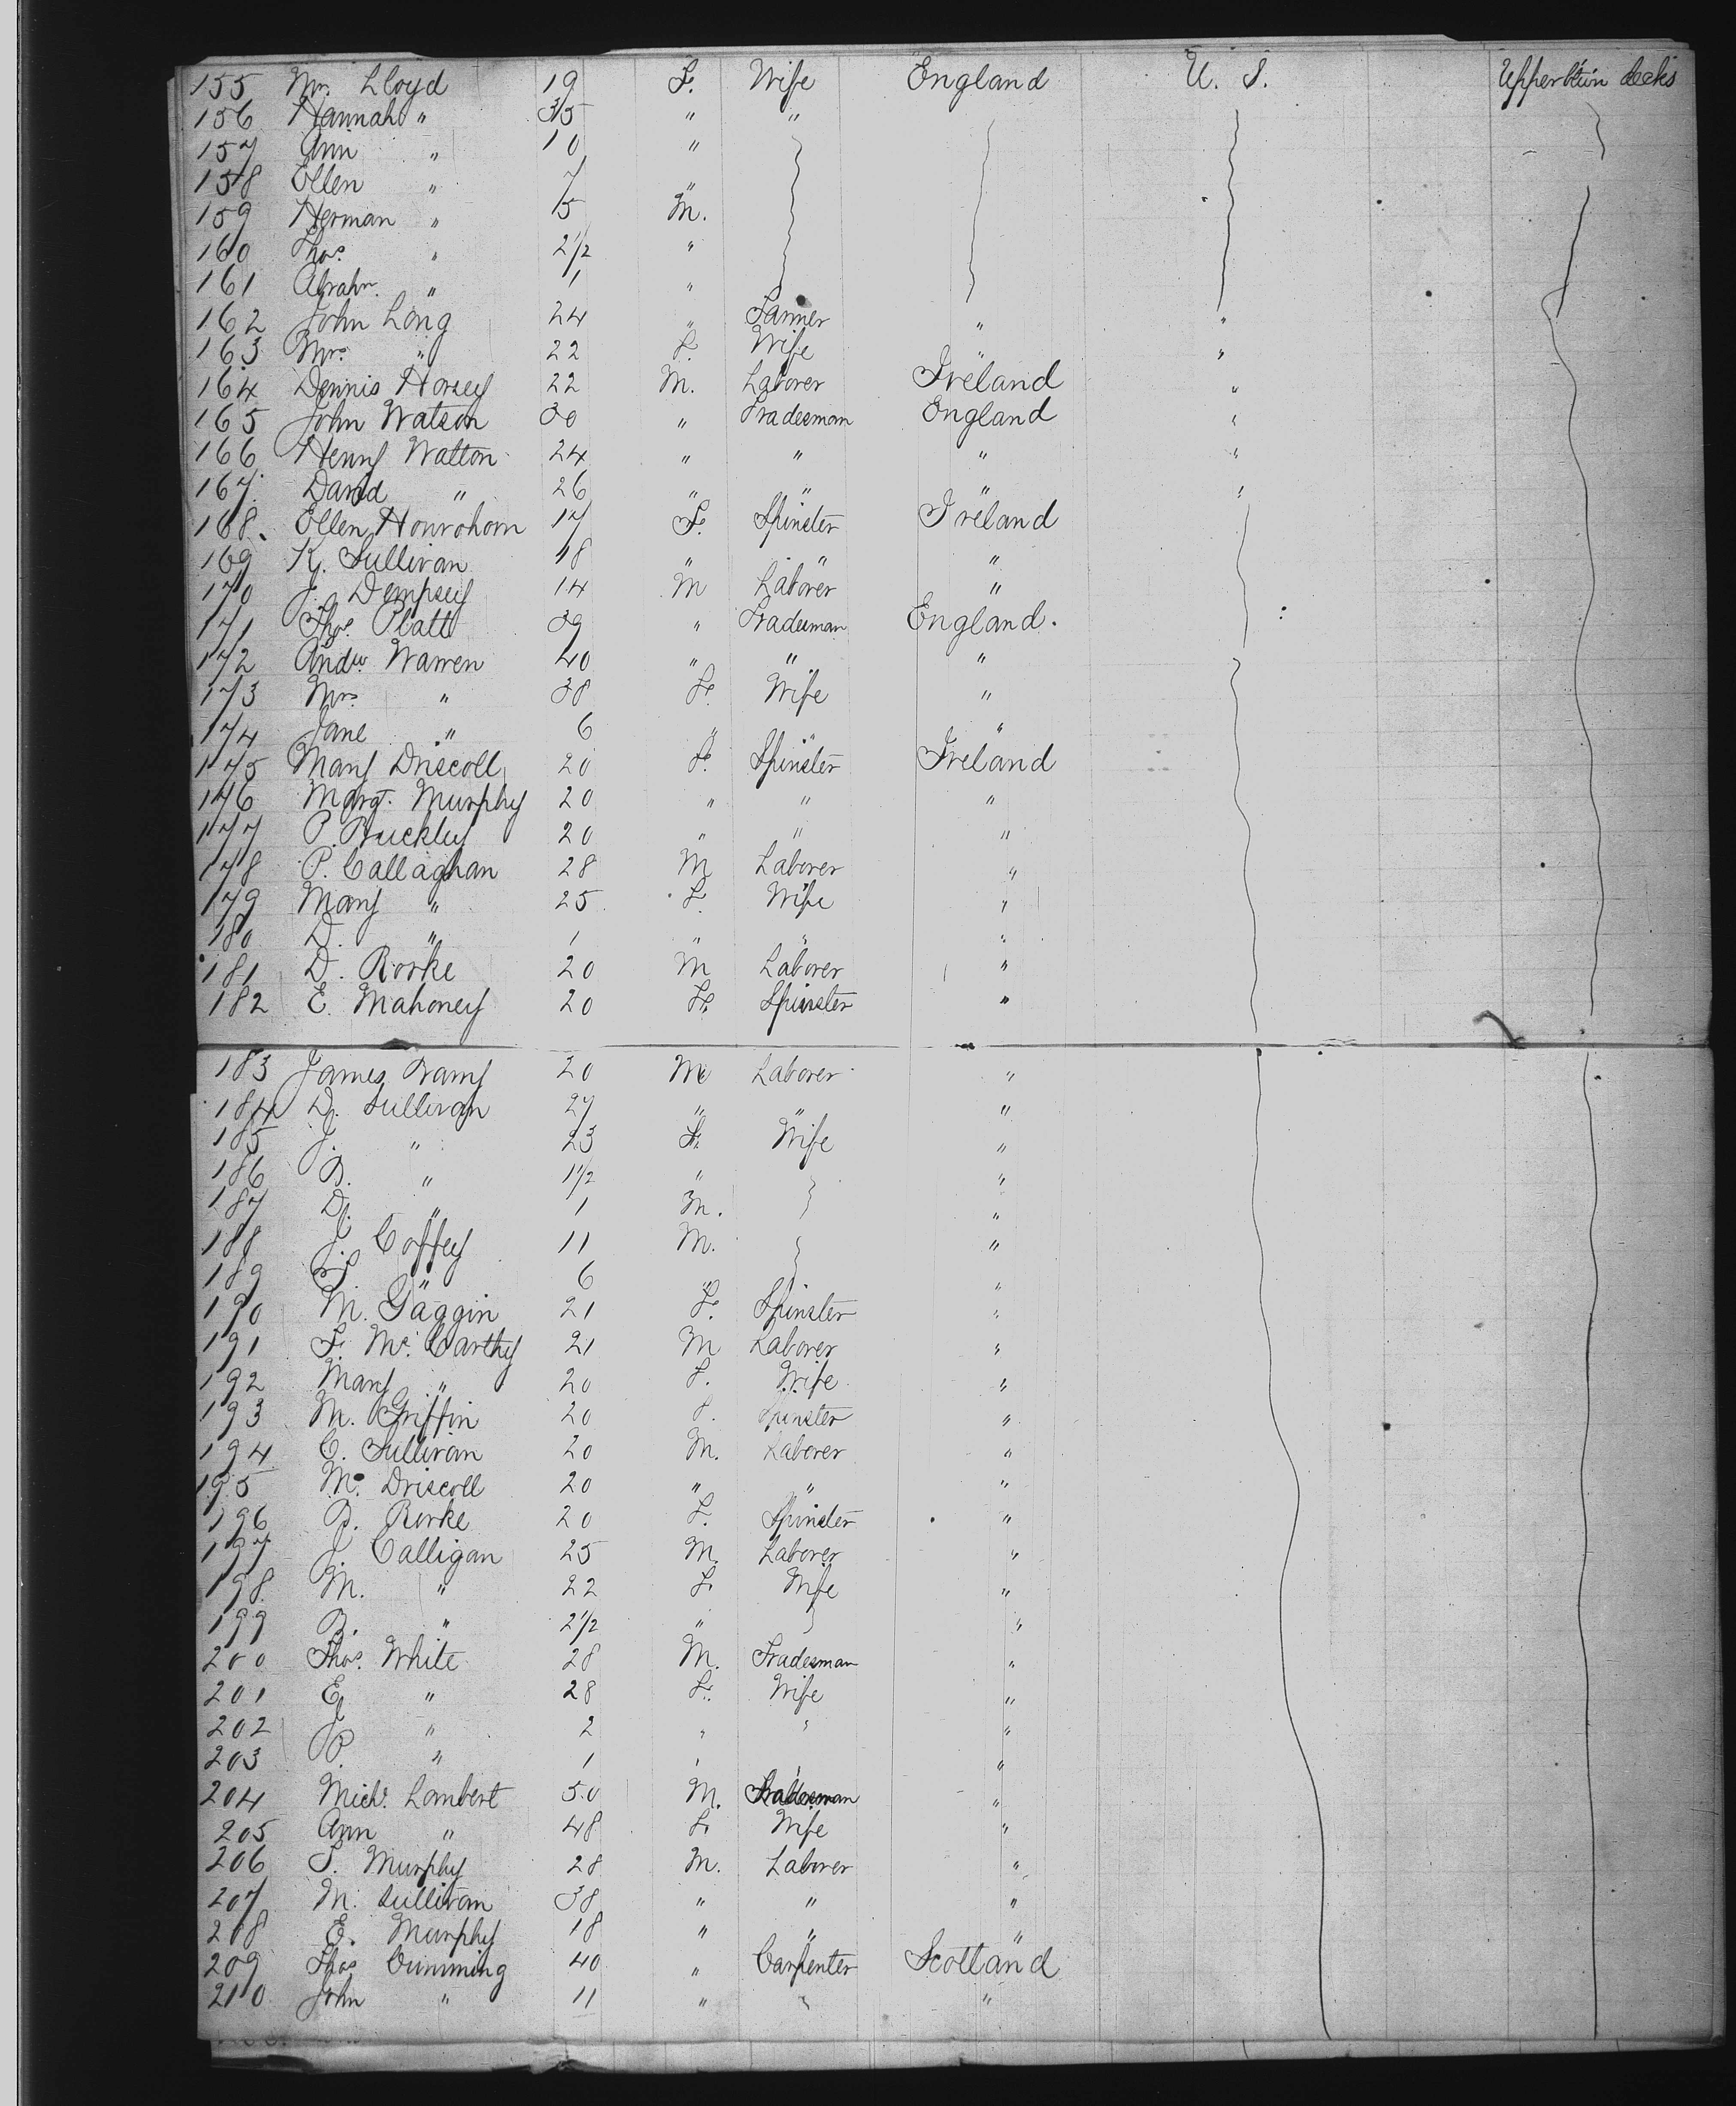 155 Mr. Lloyd 19 F. Wife England U. S. Upper btwn decks
156 Hannah " 35 " "
157 Ann " 10 "
158 Ellen " 7 "
159 Herman " 5 M.
160 Thos. " 2 1/2 "
161 Abrahm. " 1 "
162 John Long 24 " Farmer " "
163 Mrs. " 22 F. Wife " "
164 Dennis Horsey 22 M. Laborer Ireland "
165 John Watson 30 " Tradesman England "
166 Henry Walton 24 " " " "
167. David " 26 " " " "
168. Ellen Hourohorn 17 F. Spinster Ireland
169 K. Sullivan 18 " " "
170 J. Dempsey 14 M Laborer "
171 Thos. Platt 39 " Tradesman England.
172 Andw. Warren 40 " " "
173 Mrs " 38 F. Wife "
174 Jane " 6 " " "
175 Mary Driscoll 20 F. Spinster Ireland
146 Margt. Murphy 20 " " "
177 P. Buckley 20 " " "
178 P. Callaghan 28 M Laborer "
179 Mary " 25 F. Wife "
180 D. " 1 " " "
181 D. Rorke 20 M Laborer "
182 E. Mahoney 20 F. Spinster "
183 James Barry 20 M Laborer "
184 D. Sullivan 27 " " "
185 J. " 23 F. Wife "
186 B. " 1 1/2 " "
187 D. " 1 M. "
188 J. Coffey 11 M. "
189 T. " 6 " "
190 M. Gaggin 21 F. Spinster "
191 F. McCarthy 21 M Laborer "
192 Mary " 20 F. Wife "
193 M. Griffin 20 F. Spinster "
194 C. Sullivan 20 M. Laborer "
195 M. Driscoll 20 " " "
196 B. Rorke 20 F. Spinster "
197 J. Calligan 25 M. Laborer "
198. M. " 22 F. Wife "
199 B. " 2 1/2 " "
200 Thos. White 28 M. Tradesman "
201 E. " 28 F. Wife "
202 J " 2 " " "
203 P. " 1 " " "
204 Michl. Lambert 50 M. Tradesman "
205 Ann " 48 F. Wife "
206 T. Murphy 28 M. Laborer "
207 M. Sullivan 38 " " "
208 E. Murphy 18 " " "
209 Thos Cumming 40 " Carpenter Scotland
210 John " 11 " "